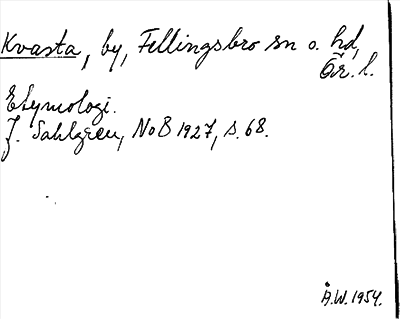 Kvasta, by, Fellingsbro sn o. hd,
Ör. l.
Etymologi.
J. Sahlgren, NoB 1927, s. 68.
Å.W. 1954.